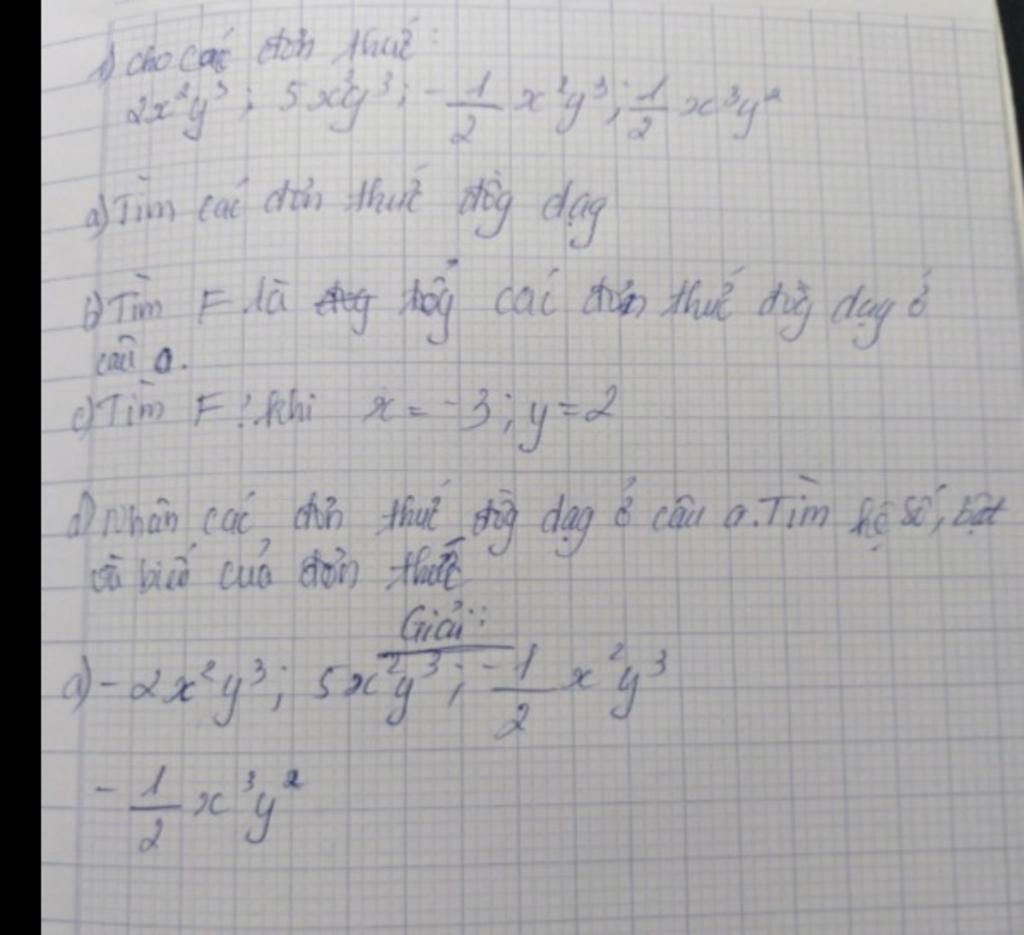 1) cho các đơn thức:
2x²y³; 5x²y³; -1/2 x²y³; 1/2 x³y²
a) Tìm các đơn thức đồg dạg
b) Tìm F là tổg các đơn thức đồg dạg ở
câu a.
c) Tìm F? khi x = -3; y = 2
d) Nhân các đơn thức đồg dạg ở câu a. Tìm hệ số, bật
và biến của đơn thức
Giải:
a) - 2x²y³; 5x²y³; -1/2 x²y³
- 1/2 x³y²